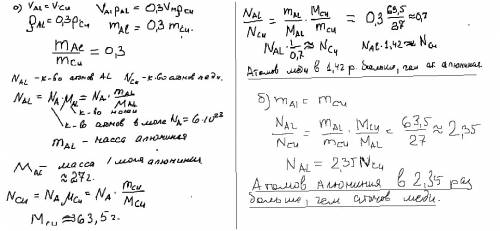 а) V_Al = V_Cu   V_Al ρ_Al = 0,3 V_Al ρ_Cu
ρ_Al = 0,3 ρ_Cu   m_Al = 0,3 m_Cu.
m_Al / m_Cu = 0,3
N_AL – к-во атомов AL   N_Cu – к-во атомов меди.
N_AL = N_A μ_AL = N_A · m_AL / M_AL
к-во молей
к-в атомов в моле N_A = 6·10²³
m_AL – масса алюминия
M_AL – масса 1 моля алюминия
≈ 27 г.
N_Cu = N_A μ_Cu = N_A · m_Cu / M_Cu
M_Cu ≈ 63,5 г.
N_AL / N_Cu = m_AL / M_AL · M_Cu / m_Cu = 0,3 63,5 / 27 ≈ 0,7
N_AL · 1 / 0,7 ≈ N_Cu   N_AL · 1,42 ≈ N_Cu
Атомов меди в 1,42 р. больше, чем ат алюминия.
б) m_Al = m_Cu
N_AL / N_Cu = m_Al / m_Cu · M_Cu / M_AL = 63,5 / 27 ≈ 2,35
N_AL = 2,35 N_Cu
Атомов алюминия в 2,35 раз
больше, чем атомов меди.